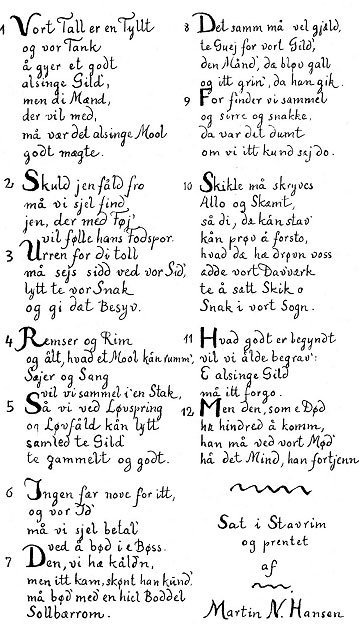 1 Vort Tall er en Tyllt
og vor Tank
å gyer et godt
alsinge Gild',
men di Mænd,
der vil med,
må vær det alsinge Mool
godt mægte.
2 Skuld jen fåld fro
må vi sjel find
jen, der med Føj'
vil følle hans Fodspor.
3 Urren for di toll
må sejs sidd ved vor Sid',
lytt te vor Snak
og gi dæt Besyv.
4 Remser og Rim
og ålt, hvad et Mool kån rumm',
Sejer og Sang
vil vi sammel i'en Stak,
5 Så vi ved Løvspring
og Løvfåld kån lytt
samled te Gild
te gammelt og godt.
6 Ingen får nove for itt,
og vor Id'
må vi sjel betal'
ved å bød i e Bøss.
7 Den, vi hæ kåldn,
men itt kam, skønt han künd'
må bød med en hiel Boddel
Sollbærrom.
8 Del samm må vel gjæld,
te Guej for vort Gild',
den Månd', da bløv gall
og itt grin', da han gik.
9 For finder vi sammel
og sirre og snakke,
da var det dumt
om vi itt kund sej do.
10 Skikle må skryves
Allo og Skæmt,
så di, dæ kån slav'
kån prøv å forsto,
hvad da hæ drøvn voss
adde vort Davværk
te å sætt Skik o
Snak i vort Sogn.
11 Hvad godt er begyndt
vil vi ålde begrav':
E alsinge Gild
må itt forgo.
12 Men den, som e Død
hæ hindred å komm,
han må ved vort Mød'
hå det Mind, han fortjenn
Sat i Stavrim
og prentet
af
Martin N. Hansen